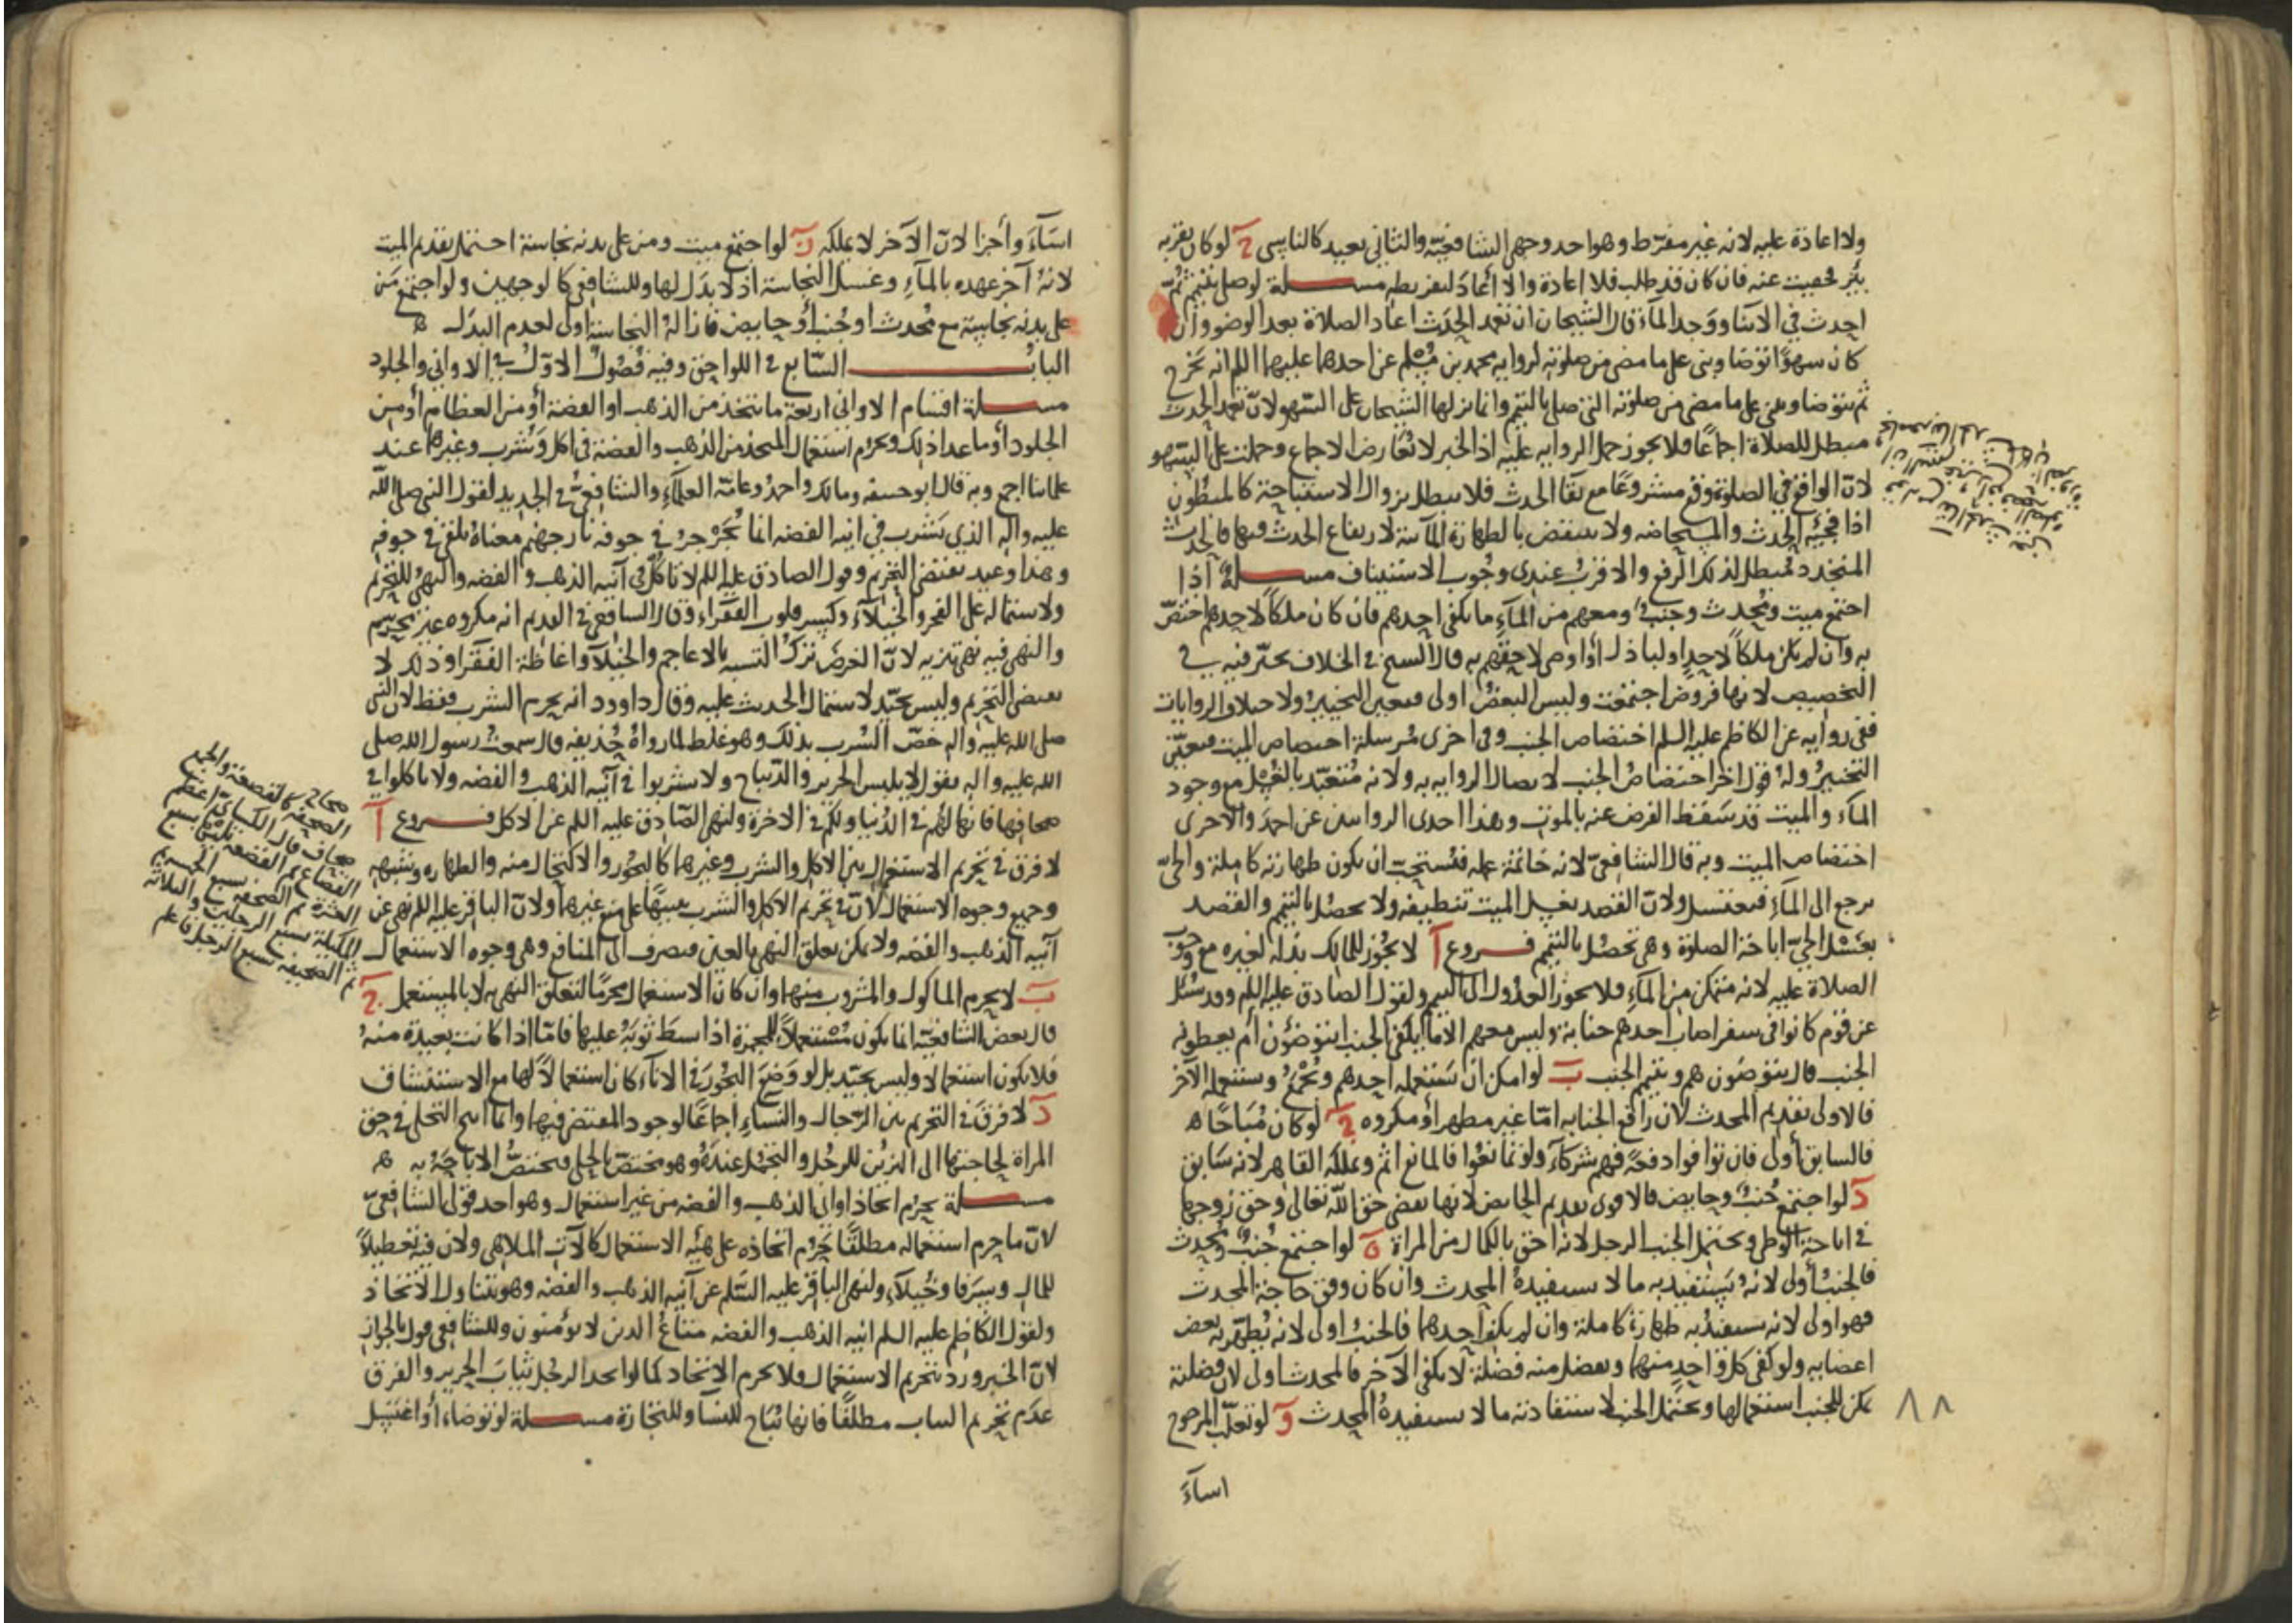 ولا اعادة عليه لانه غير مفرط وهو احد وجهي الشافعية والثاني يعيد كالناسي ج لو كان بقربه
بئر خفيت عنه فان كان قد طلب فلا اعادة والا اعاد لتفريطه مسـلة لو صلى بتيمم ثم
احدث في الاثنا ووجد الماء قال الشيخان ان تعمد الحدث اعاد الصلاة بعد الوضو وان
كان سهوا توضا وبنى على ما مضى من صلوته لرواية محمد بن مسلم عن احدهما عليهما السلم انه يخرج
ثم يتوضا ويبني على ما مضى من صلوته التي صلى بالتيمم وانما نزلها الشيخان على السهو لان تعمد الحدث
مبطل للصلاة اجماعا فلا يجوز حمل الرواية عليه اذ الخبر لا يعارض الاجماع وحملت على السهو
لان الواقع في الصلوة وقع مشروعا مع بقا الحدث فلا يبطل بزوال الاستباحة كالمبطون
اذا فجئه الحدث والمستحاضه ولا ينتقض بالطهارة المائية لارتفاع الحدث فيها فالحدث
المتجدد مبطل لذلك الرفع والاقرب عندي وجوب الاستيناف مسـلة اذا
اجتمع ميت ومحدث وجنب ومعهم من الماء ما يكفي احدهم فان كان ملكا لاحدهم اختص
به وان لم يكن ملكا لاحد او لباذل او اوصى لاحقهم به قال الشيخ في الخلاف يتخير فيه في
التخصيص لانها فروض اجتمعت وليس البعض اولى فتعين التخيير ولاختلاف الروايات
ففي رواية عن الكاظم عليه السلم اختصاص الجنب وفي اخرى مرسلة اختصاص الميت فتعين
التخيير وله قول اخر اختصاص الجنب لاتصال الرواية به ولانه متعبد بالغسل مع وجود
الماء والميت قد سقط الفرض عنه بالموت وهذا احدى الروايتين عن احمد والاخرى
اختصاص الميت وبه قال الشافعي لانه خاتمة عمله فيستحب ان يكون طهارته كاملة والحي
يرجع الى الماء فيغتسل ولان القصد بغسل الميت تنظيفه ولا يحصل بالتيمم والقصد
بغسل الحي اباحة الصلوة وهي تحصل بالتيمم فـروع آ لا يجوز للمالك بذله لغيره مع وجوب
الصلاة عليه لانه متمكن من الماء فلا يجوز العدول الى التيمم ولقول الصادق عليه السلم وقد سئل
عن قوم كانوا في سفر اصاب احدهم جنابة وليس معهم الا ما يكفي الجنب ايتوضؤن ام يعطونه
الجنب قال يتوضون هم ويتيمم الجنب ب لو امكن ان يستعمله احدهم ويجمع ويستعمله الآخر
فالاولى تقديم المحدث لان رافع الجنابه اما غير مطهر او مكروه ج لو كان مباحا ه
فالسابق أولى فان توافوا دفعة فهم شركاء ولو تمانعوا فالمانع اثم ويملكه القاهر لانه سابق
د لو اجتمع جنب وحايض فالاقوى تقديم الحايض لانها تقضي حق الله تعالى وحق زوجها
في اباحة الوطي ويحتمل الجنب الرجل لانه احق بالكمال من المراة ه لو اجتمع جنب ومحدث
فالجنب أولى لانه يستفيد به ما لا يستفيدة المحدث وان كان وفق حاجة المحدث
فهو اولى لانه يستفيد به طهارة كاملة وان لم يكف احدهما فالجنب اولى لانه يطهر به بعض
اعضايه ولو كفى كل واحد منهما ويفضل منه فضلة لا يكفي الآخر فالمحدث اولى لان فضلته
يمكن للجنب استعمالها ويحتمل الجنب لاستفادته ما لا يستفيدة المحدث و لو تغلب المرجوح
اساء
٨٨
اساء وأجزا لان الآخر لا يملكه ز لو اجتمع ميت ومن على بدنه نجاسة احتمل تقديم الميت
لانه آخر عهده بالماء وغسل النجاسة اذ لا بدل لها وللشافعي كالوجهين ولو اجتمع من
على بدنه نجاسة مع محدث او جنب أو حايض فازالة النجاسة اولى لعدم البدل ه
البابـ السابع في اللواحق وفيه فصول الاول في الاواني والجلود
مسـلة اقسام الاواني اربعة ما يتخذ من الذهب او الفضة أو من العظام أو من
الجلود أو ما عدا ذلك ويحرم استعمال المتخذ من الذهب والفضة في اكل وشرب وغيرهما عند
علمائنا اجمع وبه قال ابو حنيفه ومالك واحمد وعامة العلماء والشافعي في الجديد لقول النبي صلى الله
عليه واله الذي يشرب في آنية الفضه انما يجرجر في جوفه نار جهنم معناه يلقى في جوفه
وهذا وعيد يقتضي التحريم وقول الصادق عليه السلم لا تاكل في آنيه الذهب والفضه والنهي للتحريم
ولاشتماله على الفخر والخيلاء وكسر قلوب الفقراء وقال الشافعي في القديم انه مكروه غير محرم
والنهي فيه نهي تنزيه لان الغرض ترك التشبه بالاعاجم والخيلا واغاظة الفقرا وذلك لا
يقتضي التحريم وليس بجيد لاشتمال الحديث عليه وقال داود انه يحرم الشرب فقط لان النبي
صلى الله عليه واله خص الشرب بذلك وهو غلط لما رواه حذيفه قال سمعت رسول الله صلى
الله عليه واله يقول لا يلبس الحرير والديباج ولا تشربوا في آنية الذهب والفضه ولا تاكلوا في
صحافها فانها لهم في الدنيا ولكم في الاخرة ولنهي الصادق عليه السلم عن الاكل فـروع آ
لا فرق في تحريم الاستعمال بين الاكل والشرب وغيرهما كالبخور والاكتحال منه والطهاره وشبهه
وجميع وجوه الاستعمال لان في تحريم الاكل والشرب تنبيها على منع غيرهما ولان الباقر عليه السلم نهى عن
آنيه الذهب والفضه ولا يمكن تعلق النهي بالعين فيصرف الى المنافع وهي وجوه الاستعمال
ب لا يحرم الماكول والمشروب منها وان كان الاستعمال محرما لتعلق النهي به لا بالمستعمل ج
قال بعض الشافعية انما يكون مستعملا للمجمرة اذا بسط ثوبه عليها فاما اذا كانت بعيدة منه
فلا يكون استعمالا وليس بجيد بل لو وضع البخور في الاناء كان استعمالا لها مع الاستنشاف
د لا فرق في التحريم بين الرجال والنساء اجماعا لوجود المقتضي فيهما وانما ابيح التحلي في حق
المراة لحاجتها الى التزين للرجل والتجمل عنده وهو مختص بالحلي فيختص الاباحة به ه
مسـلة يحرم اتخاذ اواني الذهب والفضه من غير استعمال وهو احد قولي الشافعي
لان ما حرم استعماله مطلقا حرم اتخاذه على هيئه الاستعمال كالآت الملاهي ولان فيه تعطيلا
للمال وسرفا وخيلاء ولنهي الباقر عليه السلم عن آنيه الذهب والفضه وهو يتناول الاتخاذ
ولقول الكاظم عليه السلم انيه الذهب والفضه متاع الذين لا يؤمنون وللشافعي قول بالجواز
لان الخبر ورد بتحريم الاستعمال فلا يحرم الاتخاذ كما لو اتخذ الرجل ثياب الحرير والفرق
عدم تحريم الثياب مطلقا فانها تباح للنسا وللتجارة مسـلة لو توضاء أو اغتسل
الصحفة كالقصعة والجمع
صحاف قال الكسائي اعظم